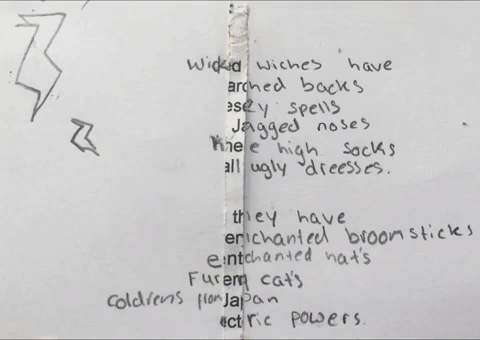 Wicked wiches have
arched backs
esey spells
Jagged noses
knee high socks
all ugly dreesses.
they have
enchanted broomsticks
entchanted hat's
Furern cat's
coldrens from Japan
ectric powers.